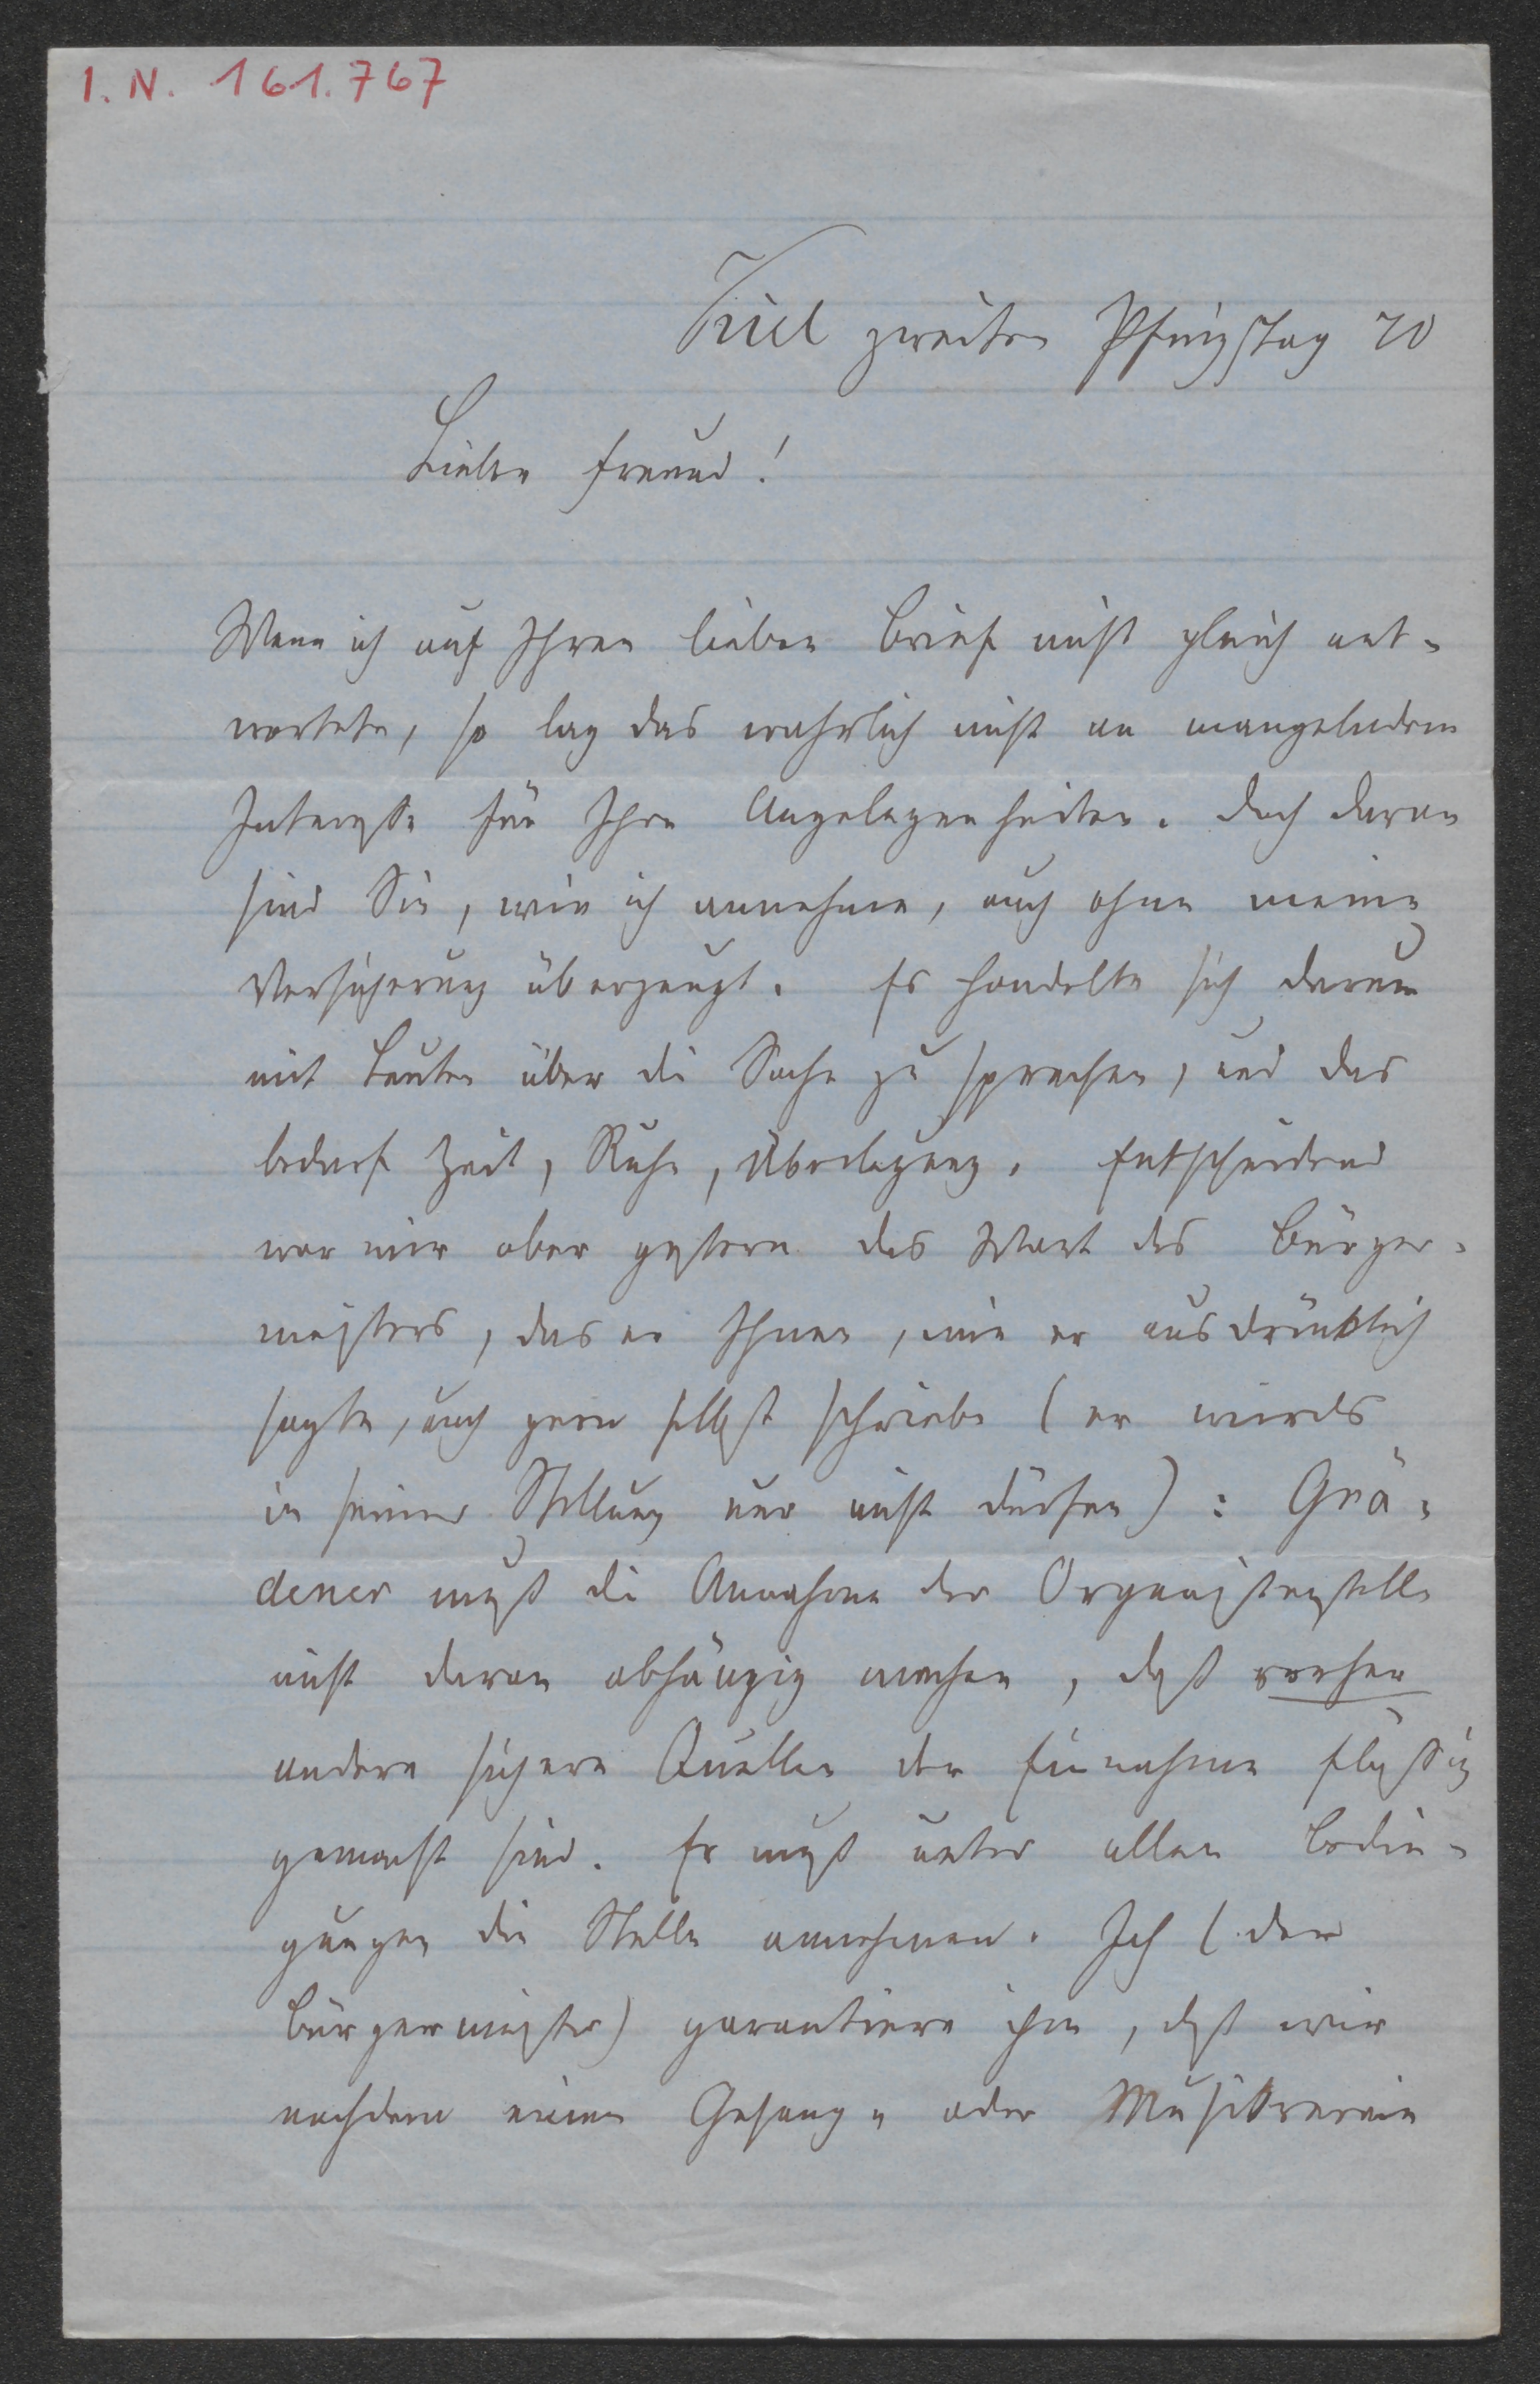 I. N. 161.767
Kiel zweiten Pfingsttag 70
Lieber Freund!
Wenn ich auf Ihren lieben Brief nicht gleich ant-
wortete, so lag das wahrlich nicht an mangelndem
Interesse für Ihre Angelegenheiten. Doch davon
sind Sie, wie ich annehme, auch ohne meine
Versicherung überzeugt. Es handelte sich darum
mit Leuten über die Sache zu sprechen, und das
bedarf Zeit, Ruhe, Überlegung. Entscheidend
war mir aber gestern das Wort des Bürger-
meisters, das er Ihnen, wie er ausdrücklich
sagte, auch gern selbst schriebe (er wirds
in seiner Stellung nur nicht dürfen): Grä-
dener muß die Annahme der Organistenstelle
nicht davon abhängig machen, daß vorher
andere sichere Quellen der Einnahme flüssig
gemacht sind. Er muß unter allen Bedin-
gungen die Stelle annehmen. Ich (der
Bürgermeister) garantiere ihm, daß wir
nachdem einen Gesang- oder Musikverein